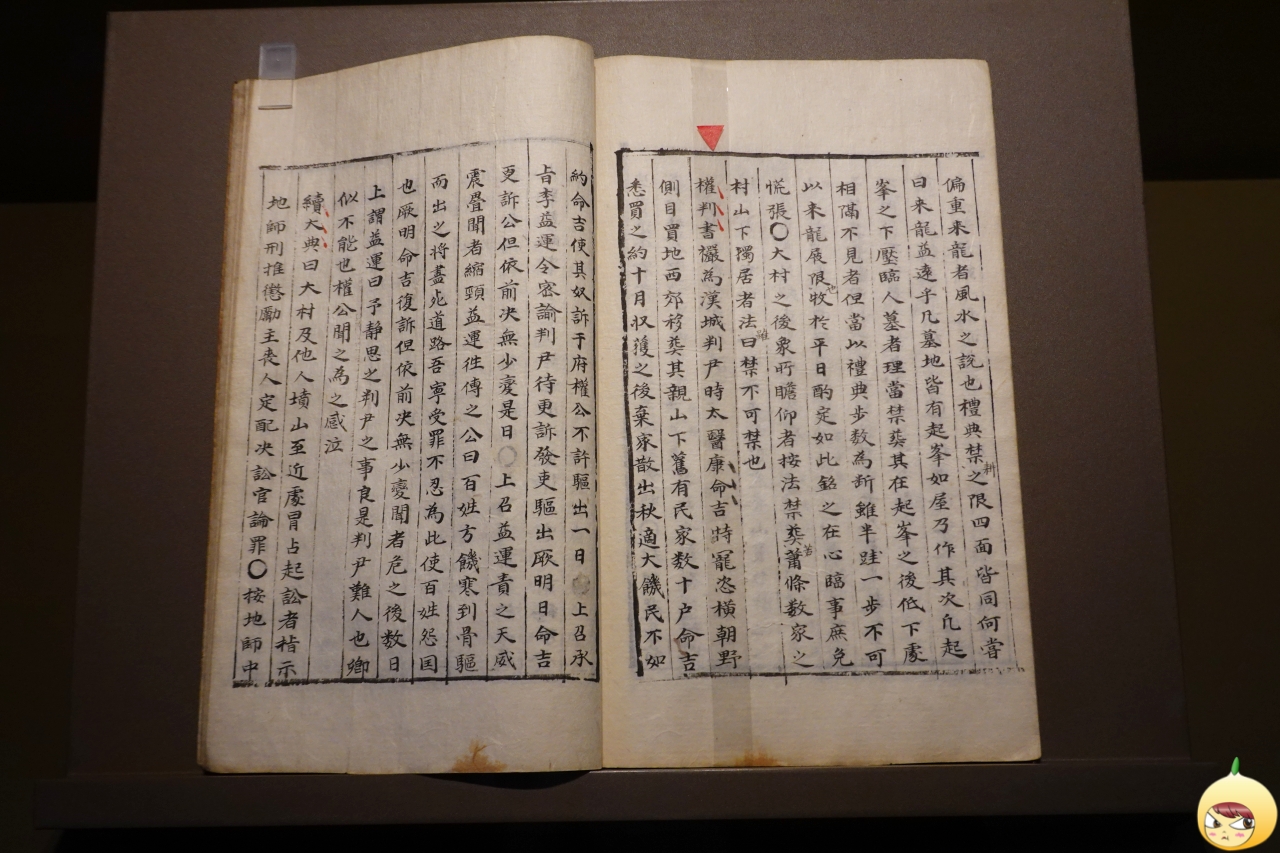 偏重来龍者風水之說也禮典禁耕之限四面皆同何嘗
曰来龍益遠乎凡墓地皆有起峯如屋乃作其次凡起
峯之下壓臨人墓者理當禁葬其在起峯之後低下處
相隔不見者但當以禮典步数為斷雖半跬一步不可
以来龍展限也牧於平日酌定如此銘之在心臨事庶免
慌張〇大村之後象所瞻仰者按法禁葬若蕭條数家之
村山下獨居者法雖曰禁不可禁也
權判書𥙿為漢城判尹時太醫康命吉恃寵恣横朝野
側目買地西郊移葬其親山下舊有民家数十户命吉
悉買之約十月収穫之後棄家散出秋適大饑民不如
約命吉使其奴訴于府權公不許驅出一日〇上召承
旨李益運令密諭判尹待更訴發吏驅出厥明日命吉
更訴公但依前决無少變是日〇上召益運責之天威
震疊聞者縮頸益運徃傳之公曰百姓方饑寒到骨驅
而出之将盡死道路吾寧受罪不忍為此使百姓怨国
也厥明命吉復訴但依前决無少變聞者危之後数日
上謂益運曰予静思之判尹之事良是判尹難人也卿
似不能也權公聞之為之感泣
續大典曰大村及他人墳山至近處冒占起訟者指示
地師刑推懲勵主喪人定配决訟官論罪〇按地師中